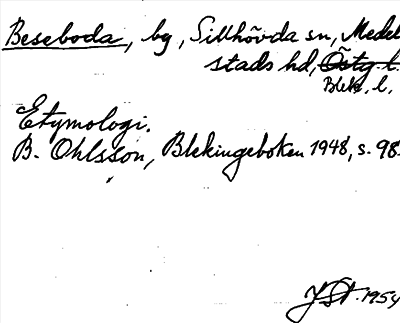 Beseboda, by, Sillhövda sn, Medel
stads hd, Östg l.
Blek. l.
Etymologi.
B. Ohlsson, Blekingeboken 1948, s. 98.
JSt. 1954